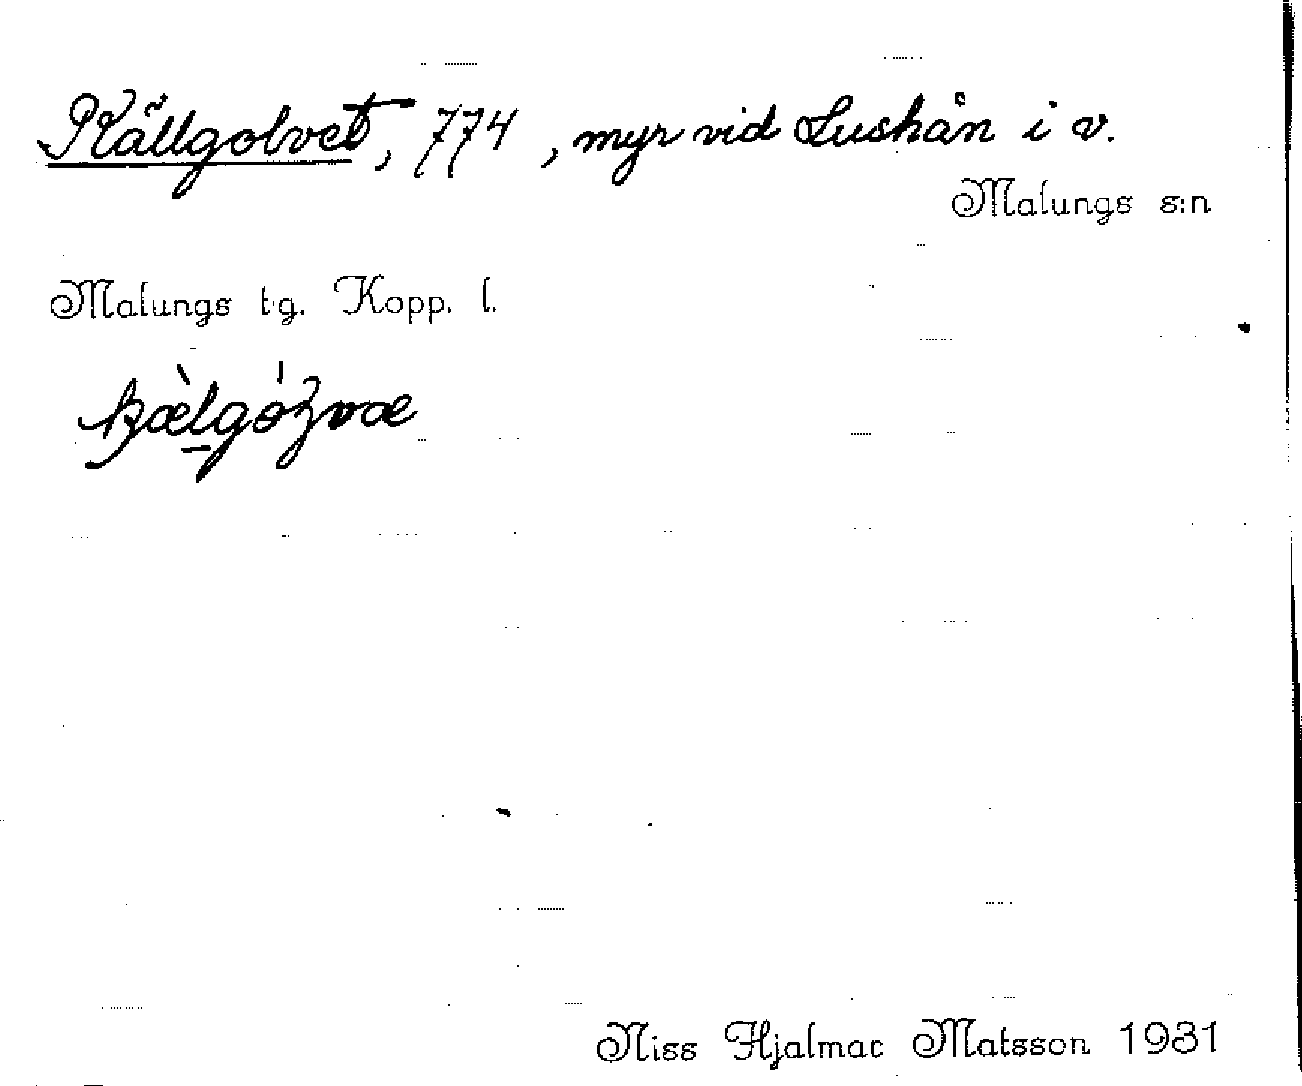 Källgolvet, 774, myr vid Lushån i v.
Malungs s:n
Malungs tg. Kopp. l.
Niss Hjalmar Matsson 1931